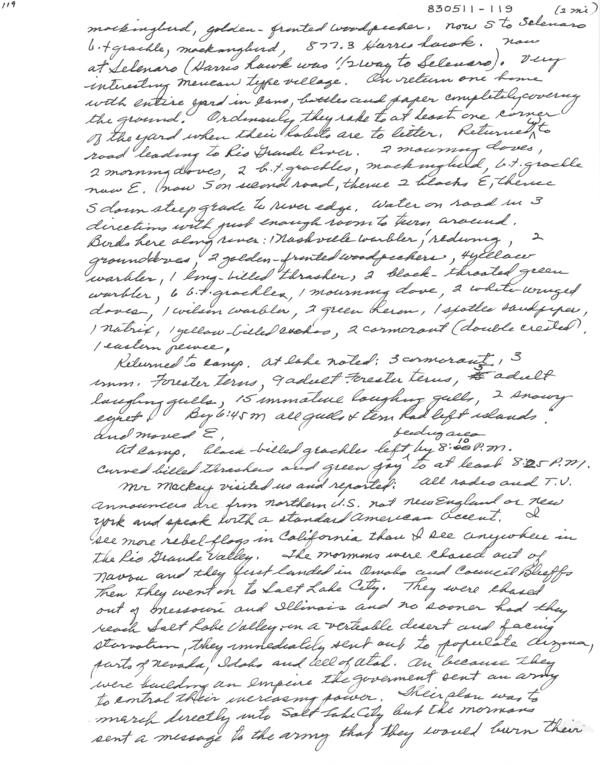 119
830511-119 (2 mi)
mockingbird, golden-fronted woodpecker. now S to Selenaro
b.t grackle, mockangbird, 877.3 Harris hawk. now
at Selenaro (Harris hawk was 1/2 way to Selenaro). Very
interesting Mexican type village. On return one home
with entire yard in cans, bottles and paper completely covering
the ground. Ordinarily they rake to at least one corner
of the yard when their habits are to letter. Returned to
road leading to Rio Grande River. 2 mourning doves,
2 morning doves, 2 b.t. grackles, mockingbird, b.t. grackle
now E. now S on second road, thence 2 blocks E, thence
S down steep grade to river edge. Water on road in 3
directions with just enough room to turn around.
Birds here along river: 1 Nashville warbler, 1 redwing, 2
grounddoves, 2 golden-fronted woodpeckers, 4 yellow
warbler, 1 long-billed thrasher, 2 black-throated green
warbler, 6 b.t. grackles, 1 mourning dove, 2 white-winged
doves, 1 wilson warbler, 2 green heron, 1 spotted sandpiper,
1 natrix, 1 yellow-billed cuckoo, 2 cormorant (double crested).
1 eastern peewee,
Returned to camp. at lake noted: 3 cormorant, 3
imm. Forester terns, 9 adult Forester terns, 5 adult
laughing gulls, 15 immature laughing gulls, 2 snowy
egret. By 6:45 M all gulls & tern had left islands.
and moved E.
feeding area
At camp. black-billed grackles left by 8:10 P.M.
Curved billed thrashers and green jay to at least 825 P.M.
Mr Mackay visited us and reported: All radio and T.V.
announcers are from northern U.S. not new England or new
york and speak with a standard American accent. I
see more rebel flags in California than I see anywhere in
the Rio Grande Valley. The mormons were chased out of
Navou and they just landed in Omaha and Council Bluffs
Then they went on to Salt Lake City. They were chased
out of Missouri and Illinois and no sooner had they
reach Salt Lake Valley, in a veritable desert and facing
starvation, they immediately sent out to populate Arizona,
parts of Nevada, Idaho and all of Utah. An because they
were building an empire the goverment sent an army
to control their increasing power. Their plan was to
march directly into Salt Lake City but the mormons
sent a message to the army that they would burn their